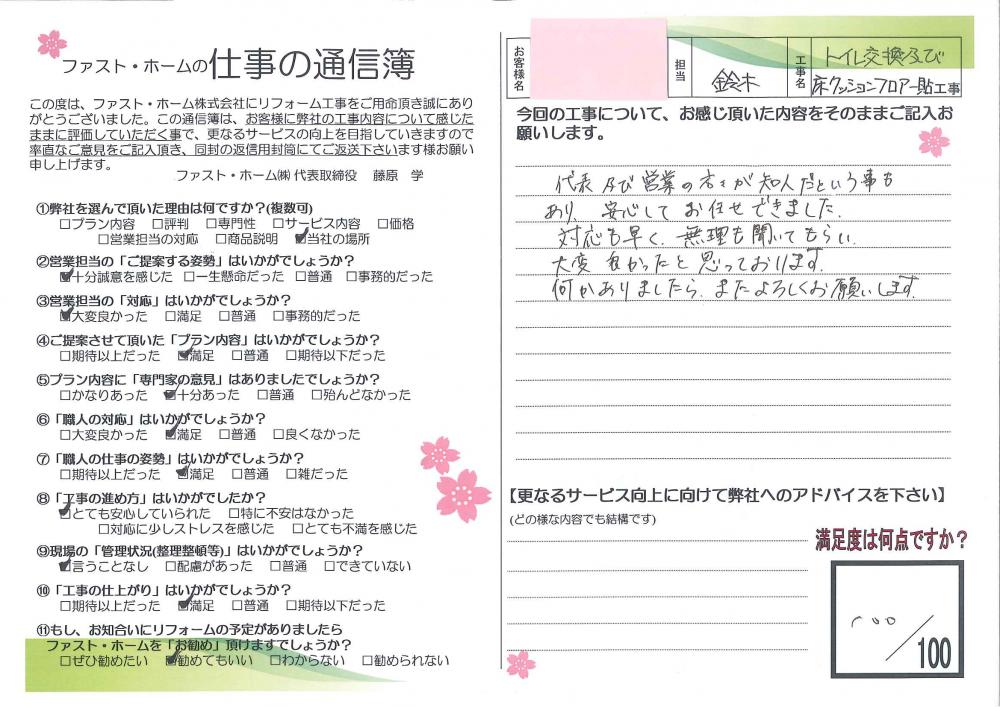 ファスト・ホームの仕事の通信簿
この度は、ファスト・ホーム株式会社にリフォーム工事をご用命頂き誠にあり
がとうございました。この通信簿は、お客様に弊社の工事内容について感じた
ままに評価していただく事で、更なるサービスの向上を目指していきますので
率直なご意見をご記入頂き、同封の返信用封筒にてご返送下さいます様お願い
申し上げます。
ファスト・ホーム㈱ 代表取締役 藤原 学
①弊社を選んで頂いた理由は何ですか？(複数可)
□プラン内容 □評判 □専門性 □サービス内容 □価格
□営業担当の対応 □商品説明 ☑当社の場所
②営業担当の「ご提案する姿勢」はいかがでしょうか？
☑十分誠意を感じた □一生懸命だった □普通 □事務的だった
③営業担当の「対応」はいかがでしょうか？
☑大変良かった □満足 □普通 □事務的だった
④ご提案させて頂いた「プラン内容」はいかがでしょうか？
□期待以上だった ☑満足 □普通 □期待以下だった
⑤プラン内容に「専門家の意見」はありましたでしょうか？
□かなりあった ☑十分あった □普通 □殆んどなかった
⑥「職人の対応」はいかがでしょうか？
□大変良かった ☑満足 □普通 □良くなかった
⑦「職人の仕事の姿勢」はいかがでしょうか？
□期待以上だった ☑満足 □普通 □雑だった
⑧「工事の進め方」はいかがでしたか？
☑とても安心していられた □特に不安はなかった
□対応に少しストレスを感じた □とても不満を感じた
⑨現場の「管理状況(整理整頓等)」はいかがでしょうか？
☑言うことなし □配慮があった □普通 □できていない
⑩「工事の仕上がり」はいかがでしょうか？
□期待以上だった ☑満足 □普通 □期待以下だった
⑪もし、お知合いにリフォームの予定がありましたら
ファスト・ホームを「お勧め」頂けますでしょうか？
□ぜひ勧めたい ☑勧めてもいい □わからない □勧められない
お客様名
担当
鈴木
工事名
トイレ交換及び
床クッションフロアー貼工事
今回の工事について、お感じ頂いた内容をそのままご記入お
願いします。
代表及び営業の方々が知人だという事も
あり、安心してお任せできました。
対応も早く、無理も聞いてもらい、
大変良かったと思っております。
何かありましたら、またよろしくお願いします。
【更なるサービス向上に向けて弊社へのアドバイスを下さい】
(どの様な内容でも結構です)
満足度は何点ですか？
100/100